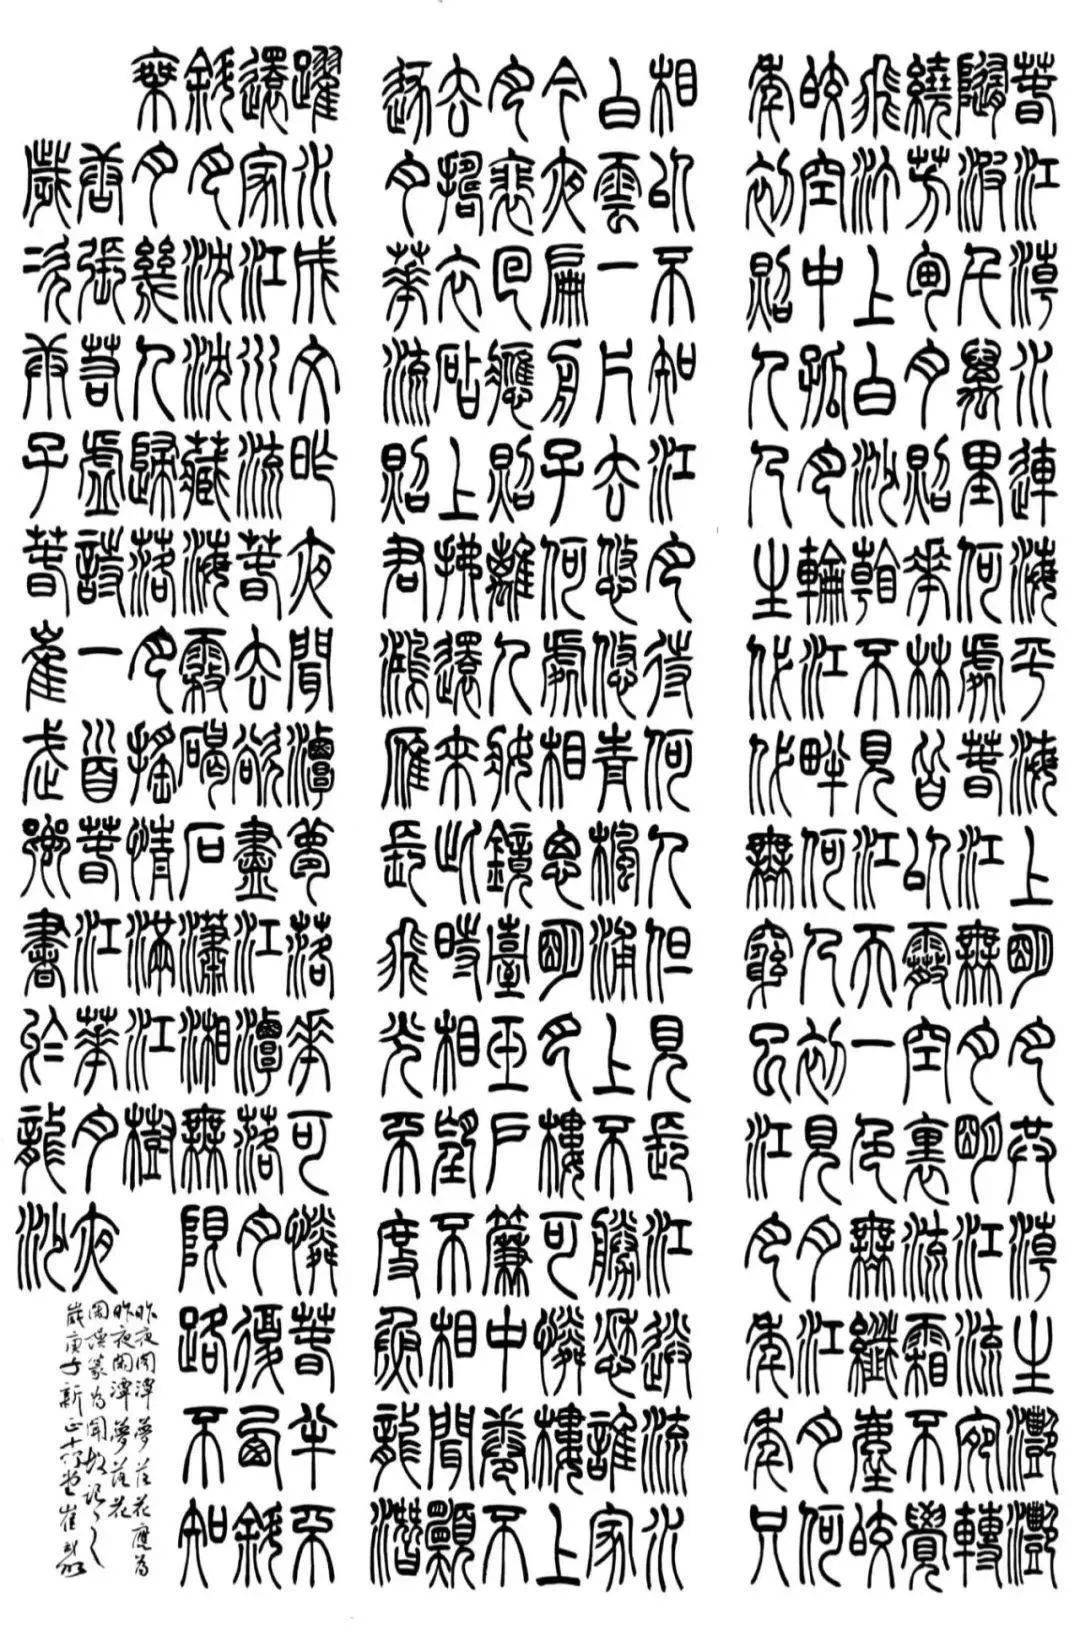 春江潮水連海平海上明月共潮生灩灩
隨波千萬里何處春江無月明江流宛轉
繞芳甸月照花林皆似霰空裏流霜不覺
飛汀上白沙看不見江天一色無纖塵皎
皎空中孤月輪江畔何人初見月江月何
年初照人人生代代無窮已江月年年只
相似不知江月待何人但見長江送流水
白雲一片去悠悠青楓浦上不勝愁誰家
今夜扁舟子何處相思明月樓可憐樓上
月裴回應照離人妝鏡臺玉戶簾中卷不
去擣衣砧上拂還來此時相望不相聞願
逐月華流照君鴻雁長飛光不度魚龍潛
躍水成文昨夜聞潭夢落花可憐春半不
還家江水流春去欲盡江潭落月復西斜
斜月沈沈藏海霧碣石瀟湘無限路不知
乘月幾人歸落月搖情滿江樹
唐張若虛詩一首春江華月夜
歲次庚子春崔書於龍沙
昨夜閑潭夢落花應為
昨夜閑潭夢落花
閑誤篆為聞故記之
歲庚子新正崔